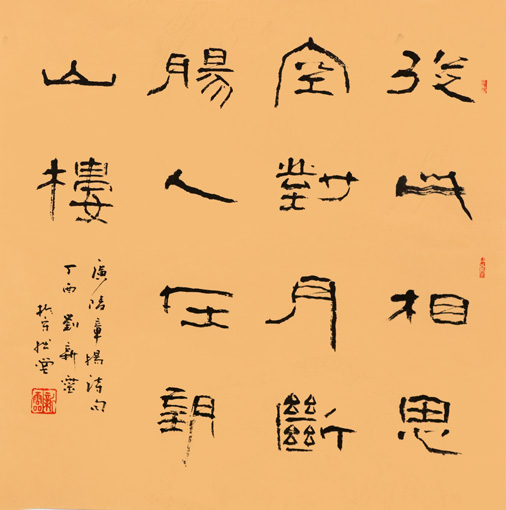 從此相思
空對月斷
腸人在望
山樓
廣陵章揚詩句
丁酉 劉新
於京 堂